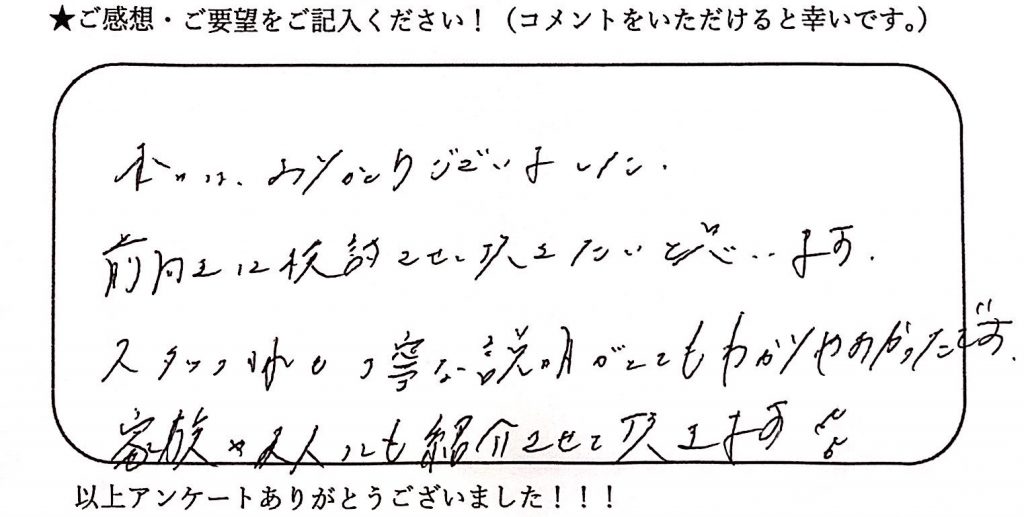 ★ご感想・ご要望をご記入ください！（コメントをいただけると幸いです。）
本日は、ありがとうございました.
前向きに検討させて頂きたいと思います.
スタッフ様も丁寧な説明がとてもわかりやすかったです.
家族や友人にも紹介させて頂きます
以上アンケートありがとうございました！！！